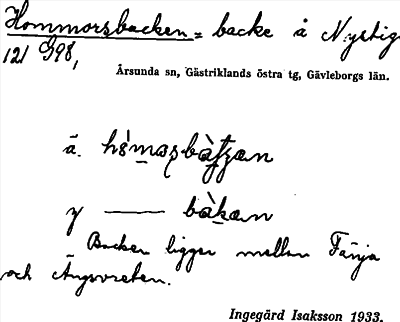 Hommorsbacken = backe å Nystig
121 G98,
Årsunda sn, Gästriklands östra tg, Gävleborgs län.
ä.
y —— bàkan
Backen ligger mellan Färja
och Ängsvreten.
Ingegärd Isaksson 1933.